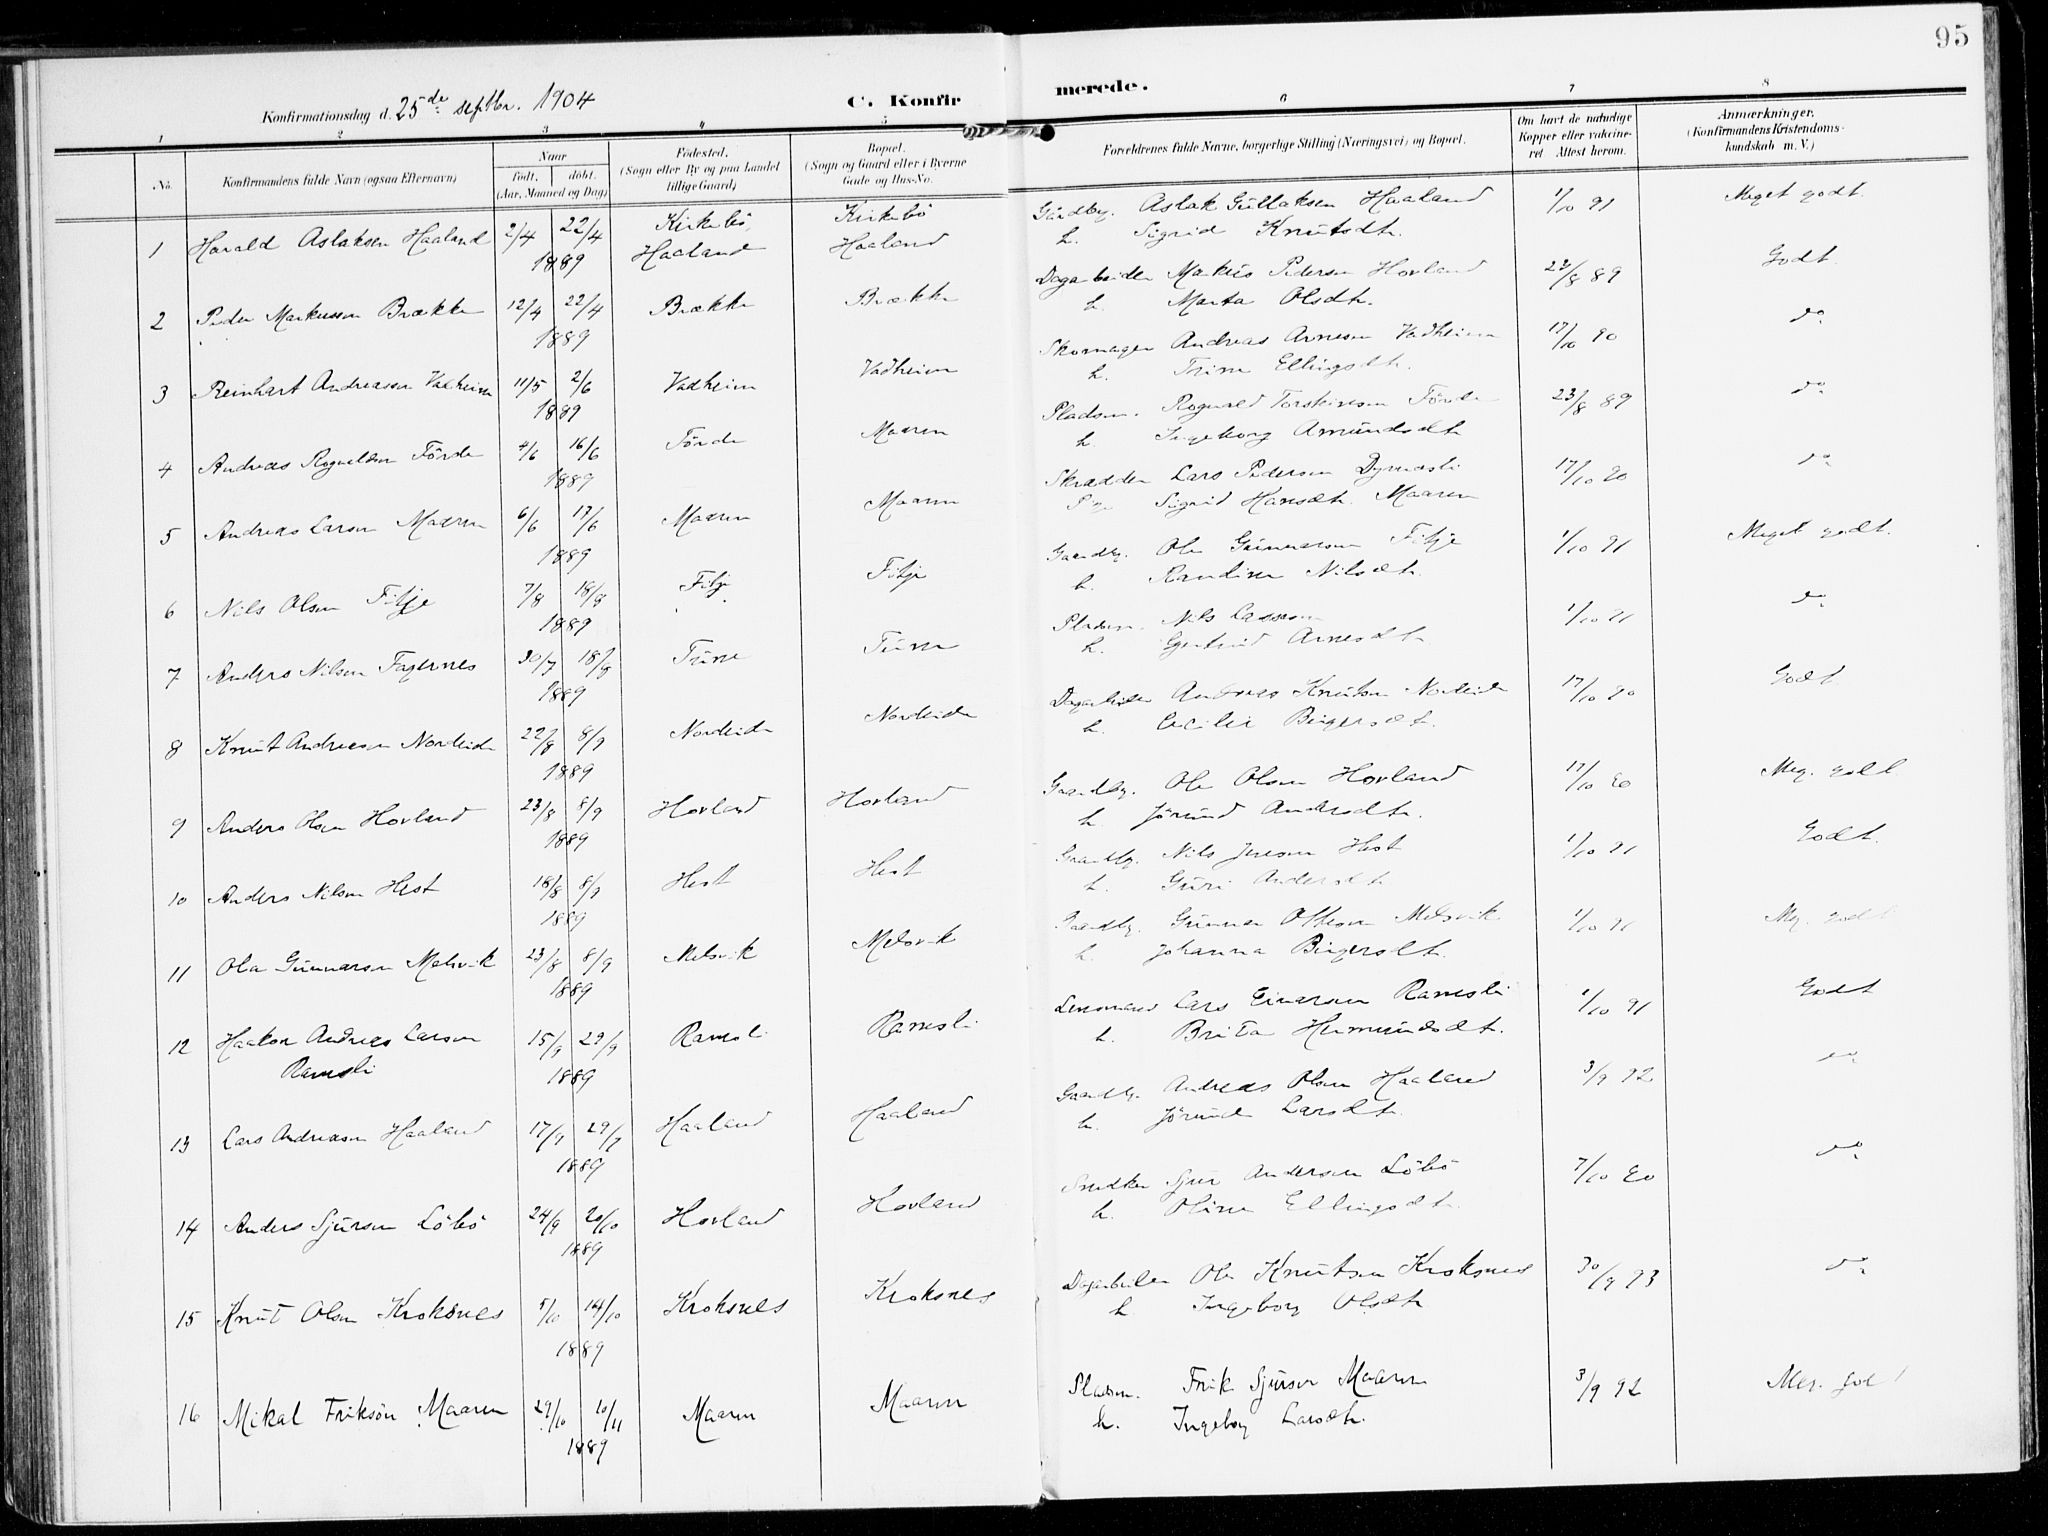 95
Konfirmationsdag d. 25de septbr. 1904
C. Konfirmerede.
1 2 3 4 5 6 7 8
No.
Konfirmandens fulde Navn (ogsaa Efternavn)
Naar
født. døbt.
(Aar, Maaned og Dag)
Fødested.
(Sogn eller By og paa Landet tillige Gaard)
Bopæl.
(Sogn og Gaard eller i Byerne Gade og Hus-No.
Forældrenes fulde Navne, borgerlige Stilling (Næringsvei) og Bopæl.
Om havt de naturlige Kopper eller vaccineret Attest herom.
Anmærkninger.
(Konfirmandens Kristendomskundskab m. V.)
1 Harald Aslaksen Haaland 2/4 22/4 1889 Kirkebö, Haaland Kirkebö Haaland Gårdbr. Aslak Gullaksen Haaland 1/10 91 Meget godt.
h. Sigrid Knutsdtr.
2 Peder Markussen Brække 12/4 22/4 1889 Brække Brække Dagarbeider Markus Pedersen Hovland 22/8 89 Godt.
h. Marta Olsdtr.
3 Reinhart Andreasen Vadheim 11/5 2/6 1889 Vadheim Vadheim Skomager Andreas Arnesen Vadheim 17/10 90 do
h. Trine Ellingsdtr.
4 Andreas Rognaldsen Förde 4/6 16/6 1889 Förde Maaren Pladsm. Rognald Torsteinsen Förde 23/8 89 do
h. Ingeborg Amundsdtr
5 Andreas Larsen Maaren 6/6 17/6 1889 Maaren Maaren Skrædder Lars Pedersen 17/10 90 do
Sigrid Hansdtr. Maaren
6 Nils Olsen Fitje 7/8 18/8 1889 Fitje Fitje Gaardbr. Ole Gunnarsen Fitje 1/10 91 Meget godt.
h. Randine Nilsdtr.
7 Anders Nilsen Fagernes 30/7 18/8 1889 Tune Tune Pladsm. Nils Lassesen 1/10 91 do
h. Gjertrud Arnesdtr.
8 Knut Andreasen Nordeide 22/8 8/9 1889 Nordeide Nordeide Dagarbeider Andreas Knutsen Nordeide 17/10 90 Godt
h. Cecilie Birgersdtr.
9 Anders Olsen Hovland 23/8 8/9 1889 Hovland Hovland Gaardbr. Ole Olsen Hovland 17/10 90 Meg. godt.
h. Jörund Andersdtr.
10 Anders Nilsen Hest 18/8 8/9 1889 Hest Hest Gaardbr. Nils Jensen Hest 1/10 91 Godt.
h. Guri Andersdtr.
11 Ola Gunnarson Melsvik 23/8 8/9 1889 Melsvik Melsvik Gaardbr. Gunnar Ottesen Melsvik 1/10 91 Meg. godt
h. Johanna Birgersdtr.
12 Haakon Andreas Larsen Ramsli 15/9 29/9 1889 Ramsli Ramsli Lensmand Lars Einarsen Ramsli 1/10 91 Godt
h. Brita Hermundsdtr.
13 Lars Andreasen Haaland 17/9 29/9 1889 Haaland Haaland Gaardbr. Andreas Olsen Haaland 3/9 92 do
h. Jörunde Larsdtr.
14 Anders Sjursen Löbö 24/9 20/10 1889 Hovland Hovland Snedker Sjur Andersen Löbö 7/10 90 do
h. Oline Ellingsdtr.
15 Knut Olsen Kroksnes 5/10 14/10 1889 Kroksnes Kroksnes Dagarbeider Ole Knutsen Kroksnes 30/9 93 do
h. Ingeborg Olsdtr
16 Mikal Eriksön Maaren 29/10 10/11 1889 Maaren Maaren Pladsm. Erik Sjursen Maaren 3/9 92 Meg. godt
h. Ingeborg Larsdtr.